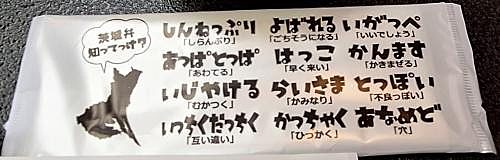 茨城弁
知ってっけ?
しんねっぷり よばれる いがっぺ
「しらんぷり」 「ごちそうになる」 「いいでしょう」
あっぱとっぱ はっこ かんます
「あわてる」 「早く来い」 「かきまぜる」
いじやける らいさま とっぽい
「むかつく」 「かみなり」 「不良っぽい」
いっちくだっちく かっちゃく あなめど
「互い違い」 「ひっかく」 「穴」